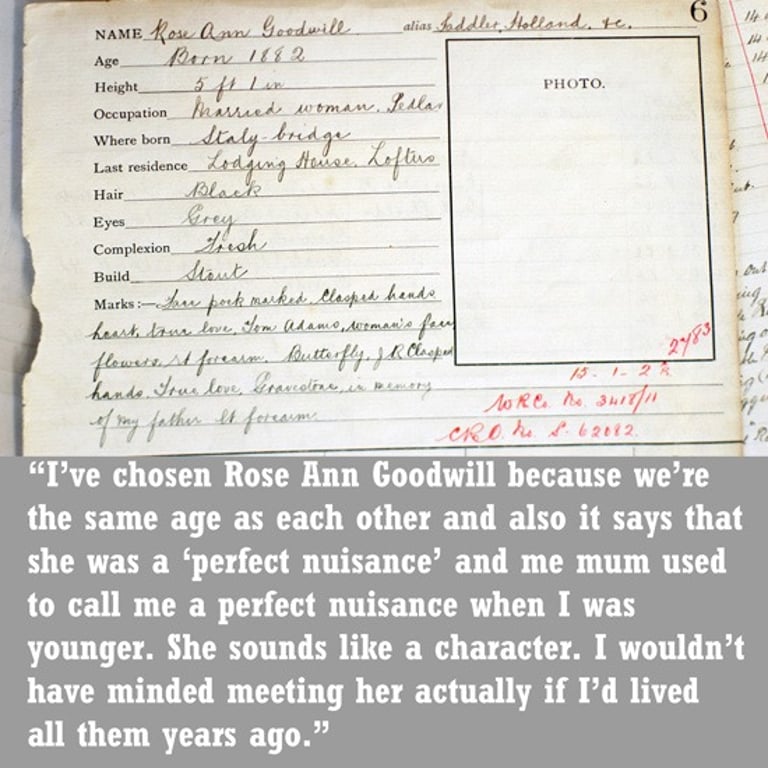 6
NAME Rose Ann Goodwill alias Saddler, Holland, &c.
Age Born 1882
Height 5 ft 1 in
Occupation Married woman, Pedlar
Where born Staly-bridge
Last residence Lodging House, Loftus
Hair Black
Eyes Grey
Complexion Fresh
Build Stout
Marks:— Face pock marked, Clasped hands
heart, true love, Tom Adams, woman's face
flowers, rt forearm. Butterfly, J R Clasped
hands, True love, Gravestone, in memory
of my father lt forearm.
PHOTO.
2783
15. 1. 2
W.R.Co. No. 3418/11
C.R.O. No. S. 62082.
“I’ve chosen Rose Ann Goodwill because we’re
the same age as each other and also it says that
she was a ‘perfect nuisance’ and me mum used
to call me a perfect nuisance when I was
younger. She sounds like a character. I wouldn’t
have minded meeting her actually if I’d lived
all them years ago.”